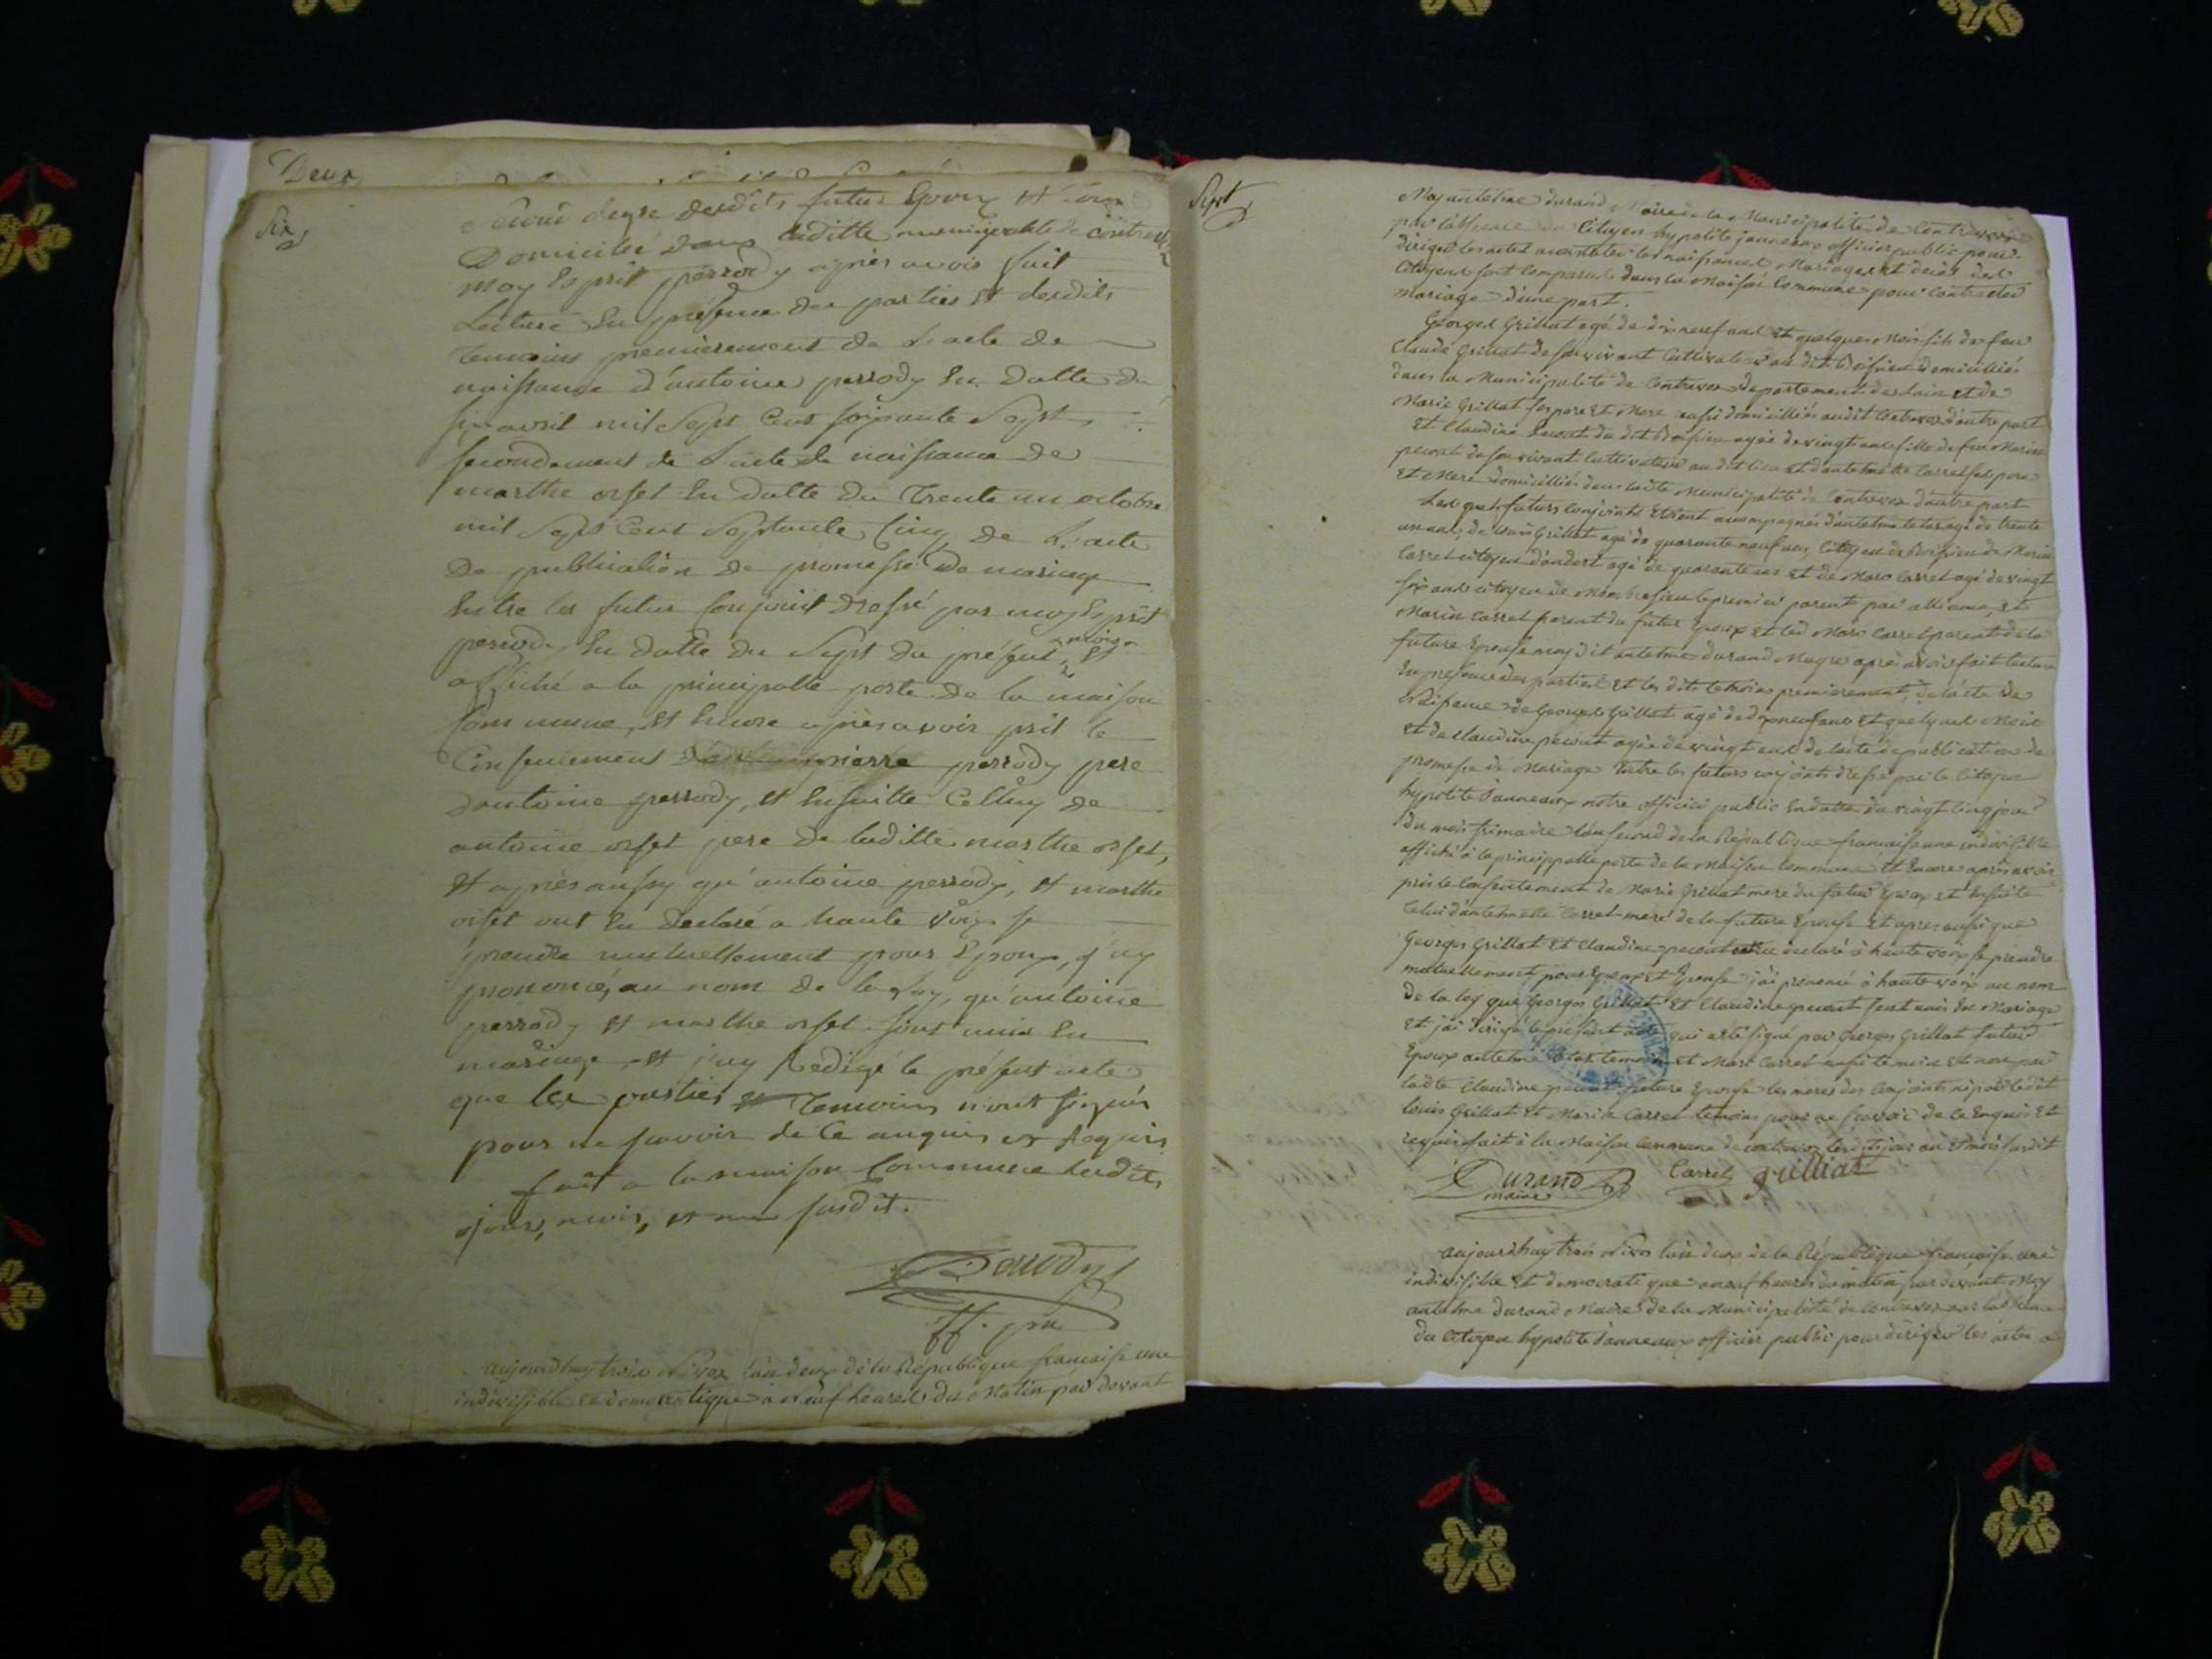 Deux
Six
second degre desdits futur Epoux et tous
Domicilié dans laditte municipalité de contrevoz
moy Esprit perrody après avoir fait
Lecture En présence des parties et desdits
temoins premierement de L'acte de
naissance d'antoine perrody En datte du
six avril mil Sept Cent soixante Sept
secondement de L'acte de naissance de
marthe orset En datte du trente un octobre
mil Sept Cent Septante Cinq de L'acte
De publication de promesse de mariage
Entre les futur Conjoint dressé par moy Esprit
perrody En datte du Sept du présent mois et
affiché a la principalle porte de la maison
Commune, et Encore après avoir prit le
Consentement pierre perrody pere
d'antoine perrody, et Ensuitte Celluy de
antoine orset pere de laditte marthe orset,
et après aussy qu'antoine perrody, et marthe
orset ont Eu déclaré a haute voix se
prendre mutuellement pour Epoux, j'ay
prononcé, au nom de la Loy, qu'antoine
perrody et marthe orset sont unis En
mariage, et j'ay Redigé le présent acte
que les parties et temoins n'ont signés
pour ne savoir de Ce enquis et Requis
fait a la maison Commune lesdits
jours, mois, et an susdit.
Perrody
off. pu
aujourdhuy trois Nivos l'an deux de la République francaise une
indivisible et democratique à neuf heures du Matin par devant
Sept
Moy antelme durand Maire de la Municipalité de Contrevoz
par l'absence du Citoyen hypolite janneaux officier public pour
diriger les actes a constater les naissances Mariages et deces des
Citoyens sont Comparus dans la Maison Commune pour Contracter
Mariage d'une part.
Georges Grillat agé de dix neuf ans et quelques Mois fils de feu
Claude Grillat de son vivant Cultivateur au dit Boissieu domiciliés
dans la Municipalité de Contrevoz departement de l'ain et de
Marie Grillat ses pere et Mere aussi domiciliés audit Contrevoz d'autre part
Et Claudine pecout du dit Boissieu agée de vingt ans fille de feu Marin
pecout de son vivant Cultivateur au dit lieu et d'antelmette Carrel ses pere
Et Mere domiciliés dans ladte Municipalité de Contrevoz d'autre part
Lesquels futurs Conjoints Etoient accompagnés d'antelme tetaz agé de trente
un ans, de Louis Grillat agé de quarante neuf ans, Citoyen de Boissieu de Marin
Carrel citoyen d'andert agé de quarante ans et de Marc Carrel agé de vingt
six ans citoyen de le premier parent par alliance, et
Marin Carrel parent du futur Epoux et led Marc Carrel parent de la
future Epouse moy dit antelme durand Mayre après avoir fait lecture
En presence des parties et les dits temoins premierement, de l'acte de
Naissance de Georges Grillat agé de dix neuf ans et quelques Mois
Et de Claudine pecout agée de vingt ans de l'acte de publication de
promesse de Mariage Entre les futurs conjoints dressé par le Citoyen
hypolite Janneaux notre officier public En datte du vingt cinq jour
du mois frimaire l'an second de la République francaise une indivisible
affiché à la principalle porte de la Maison Commune Et Encore après avoir
pris le Consentement de Marie Grillat mere du futur Epoux et Ensuite
Celui d'antelmette Carrel mere de la future Epouse Et apres aussi que
Georges Grillat et Claudine pecout ont déclaré à haute voix se prendre
mutuellement pour Epoux et Epouse j'ai prononcé à haute voix au nom
de la loy que Georges Grillat Et Claudine pecout sont unis En Mariage
Et j'ai dirigé le présent acte qui a été signé par Georges Grillat futur
Epoux antelme tetaz temoin et Marc Carrel aussi temoin Et non par
ladte Claudine pecout future Epouse les meres des Conjoints ni par ledit
Louis Grillat Et Marin Carrel temoins pour ne scavoir de ce Enquis Et
requis fait à la Maison Commune de contrevoz lesdits jour an et mois susdit
Durand
maire
Carrel
grilliat
aujourdhuy trois Nivos l'an deux de la République francaise une
indivisible Et democratique a neuf heures du matin par devant Moy
antelme durand Maire de la Municipalité de Contrevoz par l'absence
du Citoyen hypolite Janneaux officier public pour diriger les actes a